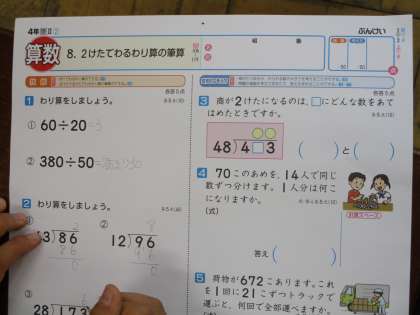 4年
算数
8. 2けたでわるわり算の筆算
ぶんけい
1 わり算をしましょう。
① 60÷20=3
② 380÷50=
2 わり算をしましょう。
43)86
2
86
0
② 12)96
8
96
0
③ 28)173
3 商が2けたになるのは、□にどんな数をあて
はめたときですか。
48)4□3
( )と( )
4 70このあめを、14人で同じ
数ずつ分けます。1人分は何こ
になりますか。
(式)
計算スペース
答え( )
5 荷物が672こあります。これ
を1回に21こずつトラックで
運ぶと、何回で全部運べますか。